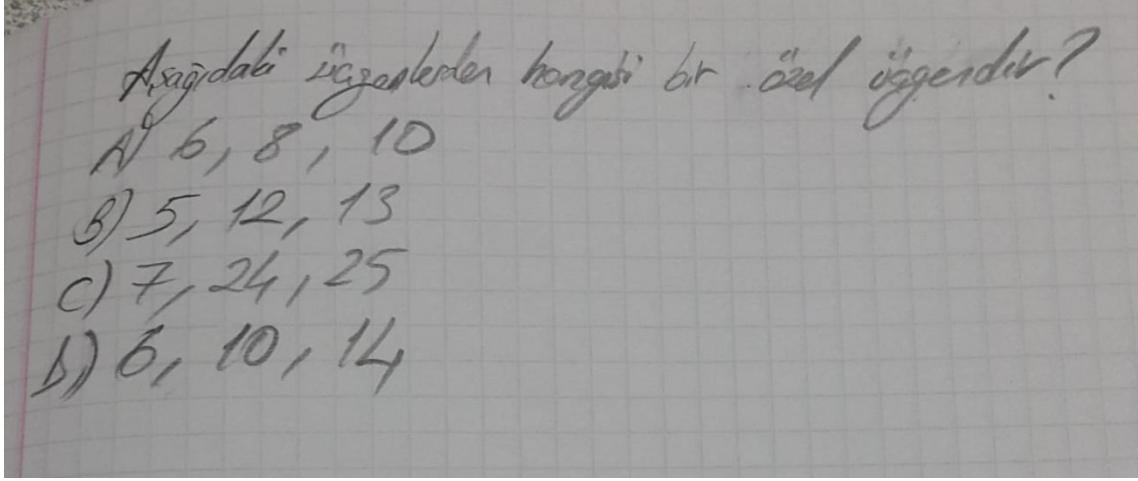 Aşağıdaki üçgenlerden hangisi bir özel üçgendir?
A) 6, 8, 10
B) 5, 12, 13
C) 7, 24, 25
D) 6, 10, 14